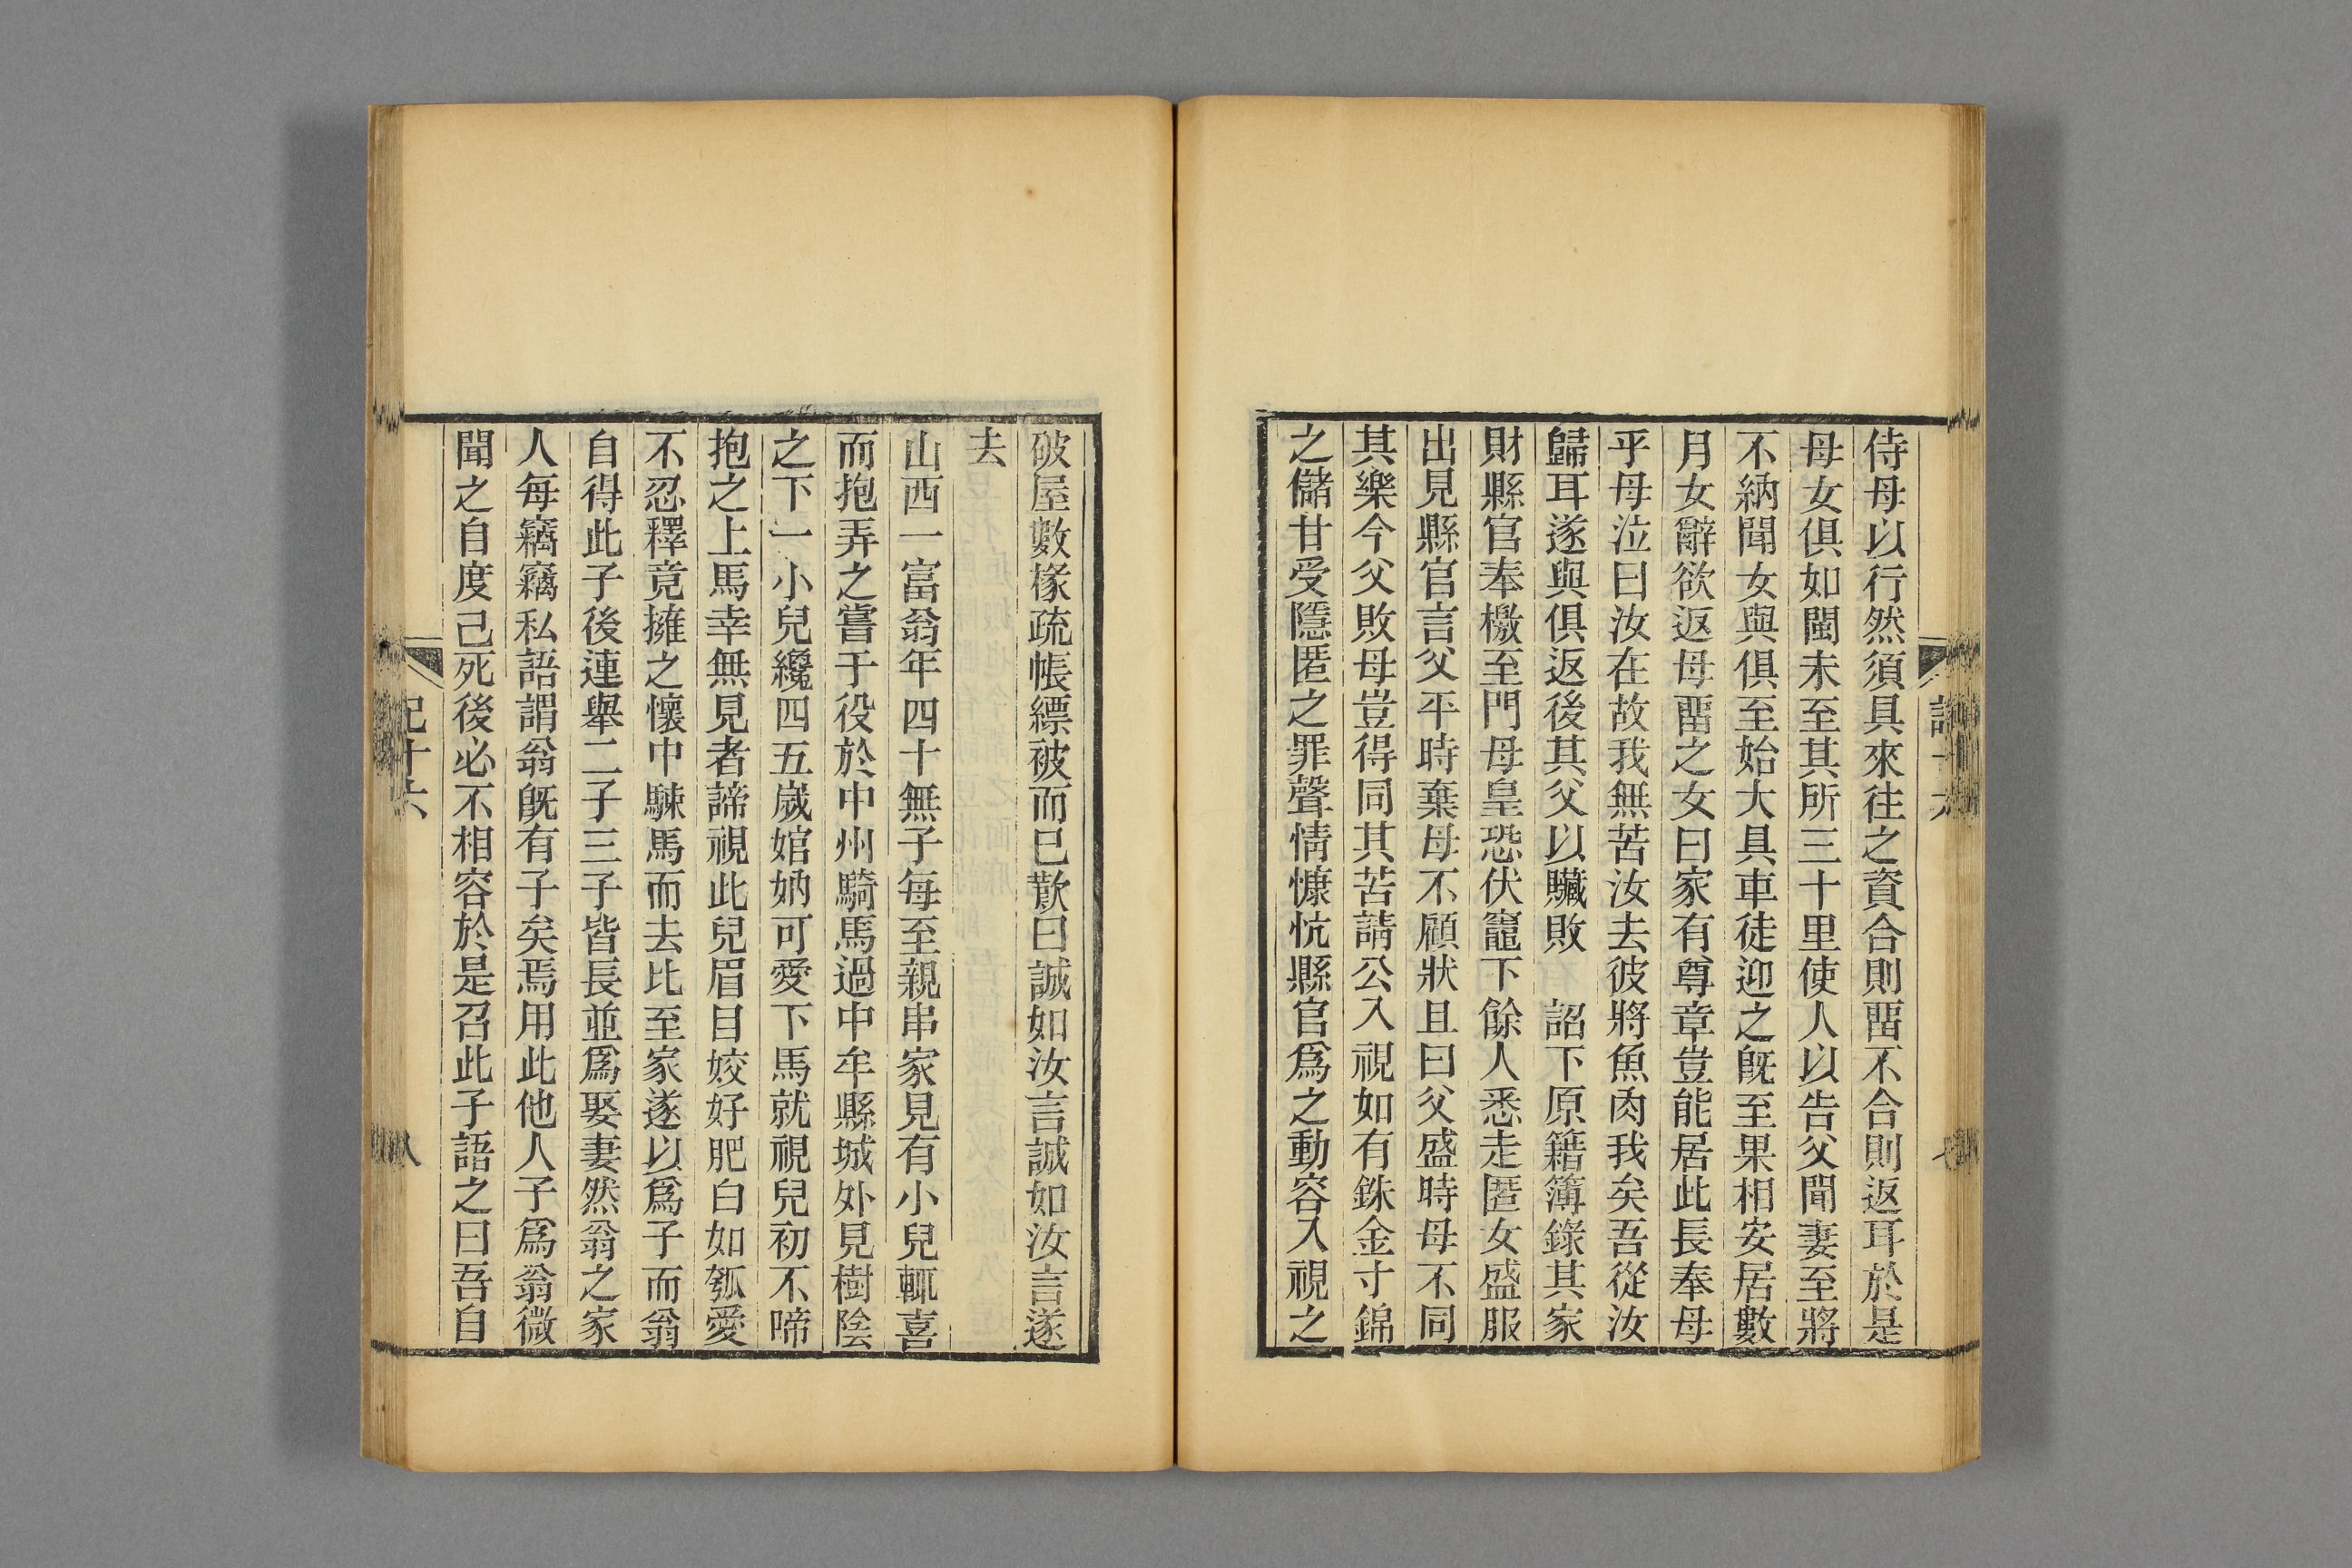 侍母以行然須具來往之資合則畱不合則返耳於是
母女俱如閩未至其所三十里使人以告父聞妻至將
不納聞女與俱至始大具車徒迎之旣至果相安居數
月女辭欲返母畱之女曰家有尊章豈能居此長奉母
乎母泣曰汝在故我無苦汝去彼將魚肉我矣吾從汝
歸耳遂與俱返後其父以贓敗　詔下原籍簿錄其家
財縣官奉檄至門母皇恐伏竈下餘人悉走匿女盛服
出見縣官言父平時棄母不顧狀且曰父盛時母不同
其樂今父敗母豈得同其苦請公入視如有銖金寸錦
之儲甘受隱匿之罪聲情慷忼縣官爲之動容入視之
破屋數椽疏帳縹被而已歎曰誠如汝言誠如汝言遂
去
山西一富翁年四十無子每至親串家見有小兒輒喜
而抱弄之嘗于役於中州騎馬過中牟縣城外見樹陰
之下一小兒纔四五歲婠妠可愛下馬就視兒初不啼
抱之上馬幸無見者諦視此兒眉目姣好肥白如瓠愛
不忍釋竟擁之懷中騋馬而去比至家遂以爲子而翁
自得此子後連舉二子三子皆長並爲娶妻然翁之家
人每竊竊私語謂翁旣有子矣焉用此他人子爲翁微
聞之自度己死後必不相容於是召此子語之曰吾自
記十六
八